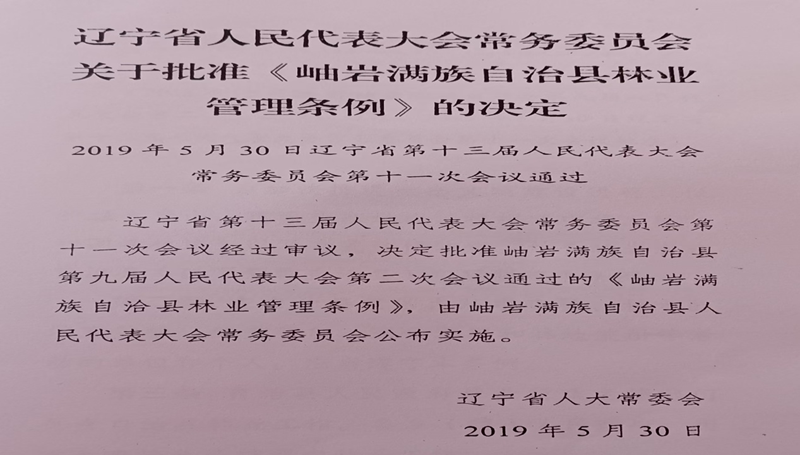 辽宁省人民代表大会常务委员会
关于批准《岫岩满族自治县林业
管理条例》的决定
2019 年 5 月 30 日辽宁省第十三届人民代表大会
常务委员会第十一次会议通过
辽宁省第十三届人民代表大会常务委员会第
十一次会议经过审议，决定批准岫岩满族自治县
第九届人民代表大会第二次会议通过的《岫岩满
族自治县林业管理条例》，由岫岩满族自治县人
民代表大会常务委员会公布实施。
辽宁省人大常委会
2019 年 5 月 30 日